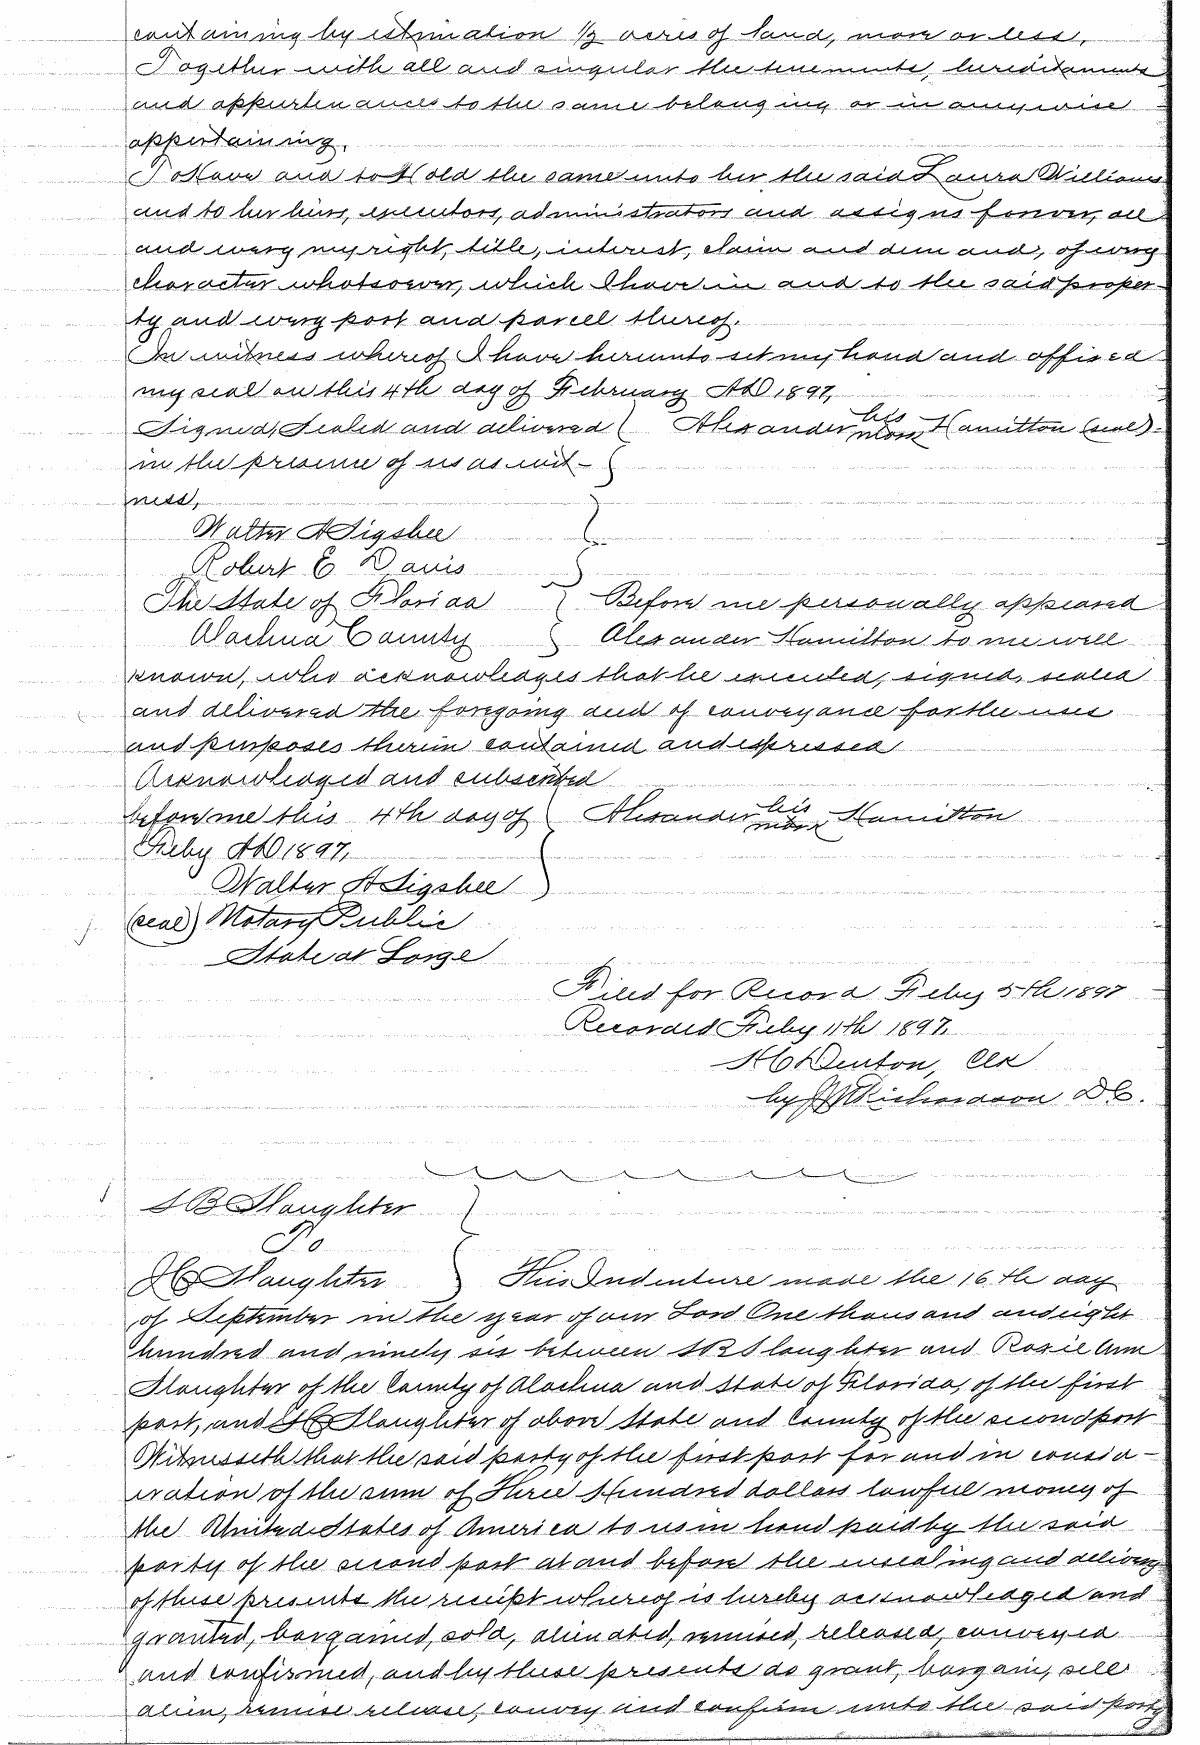 containing by estimation 1/2 acres of land, more or less.
Together with all and singular the tenements, hereditaments
and appurtenances to the same belonging or in anywise
appertaining.
To Have and to Hold the same unto her the said Laura Williams
and to her heirs, executors, administrators and assigns forever, all
and every my right, title, interest, claim and demand, of every
character whatsoever, which I have in and to the said proper-
ty and every part and parcell thereof.
In witness whereof I have hereunto set my hand and affixed
my seal on this 4th day of February AD 1897,
Signed, Sealed and delivered Alexander his mark Hamilton (seal)
in the presence of us as wit-
ness,
Walter A Sigsbee
Robert E Davis
The State of Florida Before me personally appeared
Alachua County Alexander Hamilton to me well
known, who acknowledges that he executed, signed, sealed
and delivered the foregoing deed of conveyance for the uses
and purposes therein contained and expressed
Acknowledged and subscribed
before me this 4th day of Alexander his mark Hamilton
Feby AD 1897,
Walter A Sigsbee
(seal) Notary Public
State at Large
Filed for Record Feby 5th 1897
Recorded Feby 11th 1897.
H C Denton, Clk
by Richardson D C.
S B Slaughter
To
Slaughter This Indenture made the 16th day
of September in the year of our Lord One thousand and eight
hundred and ninety six between S B Slaughter and Rosie Ann
Slaughter of the County of Alachua and State of Florida, of the first
part, and Slaughter of above State and County of the second part
Witnesseth that the said party of the first part for and in consid-
eration of the sum of Three Hundred dollars lawful money of
the United States of America to us in hand paid by the said
party of the second part at and before the ensealing and delivery
of these presents the receipt whereof is hereby acknowledged and
granted, bargained, sold, alienated, remised, released, conveyed
and confirmed, and by these presents do grant, bargain, sell
alien, remise release, convey and confirm unto the said party